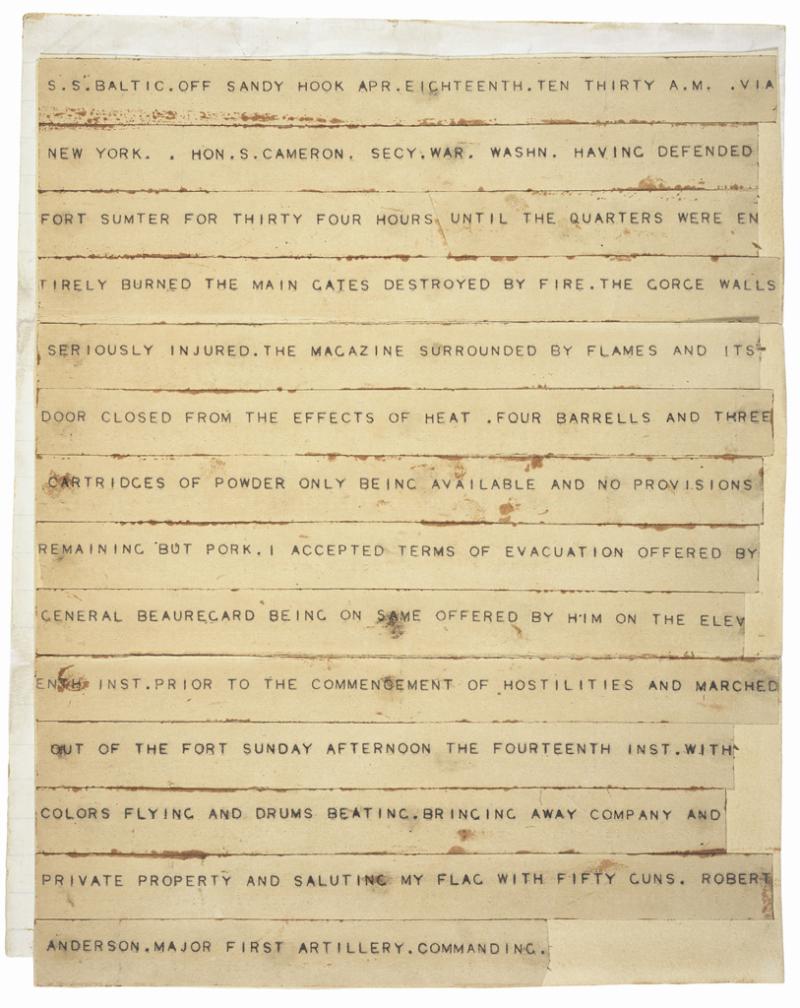 S.S.BALTIC.OFF SANDY HOOK APR.EIGHTEENTH.TEN THIRTY A.M. .VIA
NEW YORK. . HON.S.CAMERON. SECY.WAR. WASHN. HAVING DEFENDED
FORT SUMTER FOR THIRTY FOUR HOURS. UNTIL THE QUARTERS WERE EN
TIRELY BURNED THE MAIN GATES DESTROYED BY FIRE.THE GORGE WALLS
SERIOUSLY INJURED.THE MAGAZINE SURROUNDED BY FLAMES AND ITS
DOOR CLOSED FROM THE EFFECTS OF HEAT .FOUR BARRELLS AND THREE
CARTRIDGES OF POWDER ONLY BEING AVAILABLE AND NO PROVISIONS
REMAINING BUT PORK.I ACCEPTED TERMS OF EVACUATION OFFERED BY
GENERAL BEAUREGARD BEING ON SAME OFFERED BY HIM ON THE ELEV
ENTH INST.PRIOR TO THE COMMENCEMENT OF HOSTILITIES AND MARCHED
OUT OF THE FORT SUNDAY AFTERNOON THE FOURTEENTH INST.WITH
COLORS FLYING AND DRUMS BEATING.BRINGING AWAY COMPANY AND
PRIVATE PROPERTY AND SALUTING MY FLAG WITH FIFTY GUNS. ROBERT
ANDERSON.MAJOR FIRST ARTILLERY.COMMANDING.